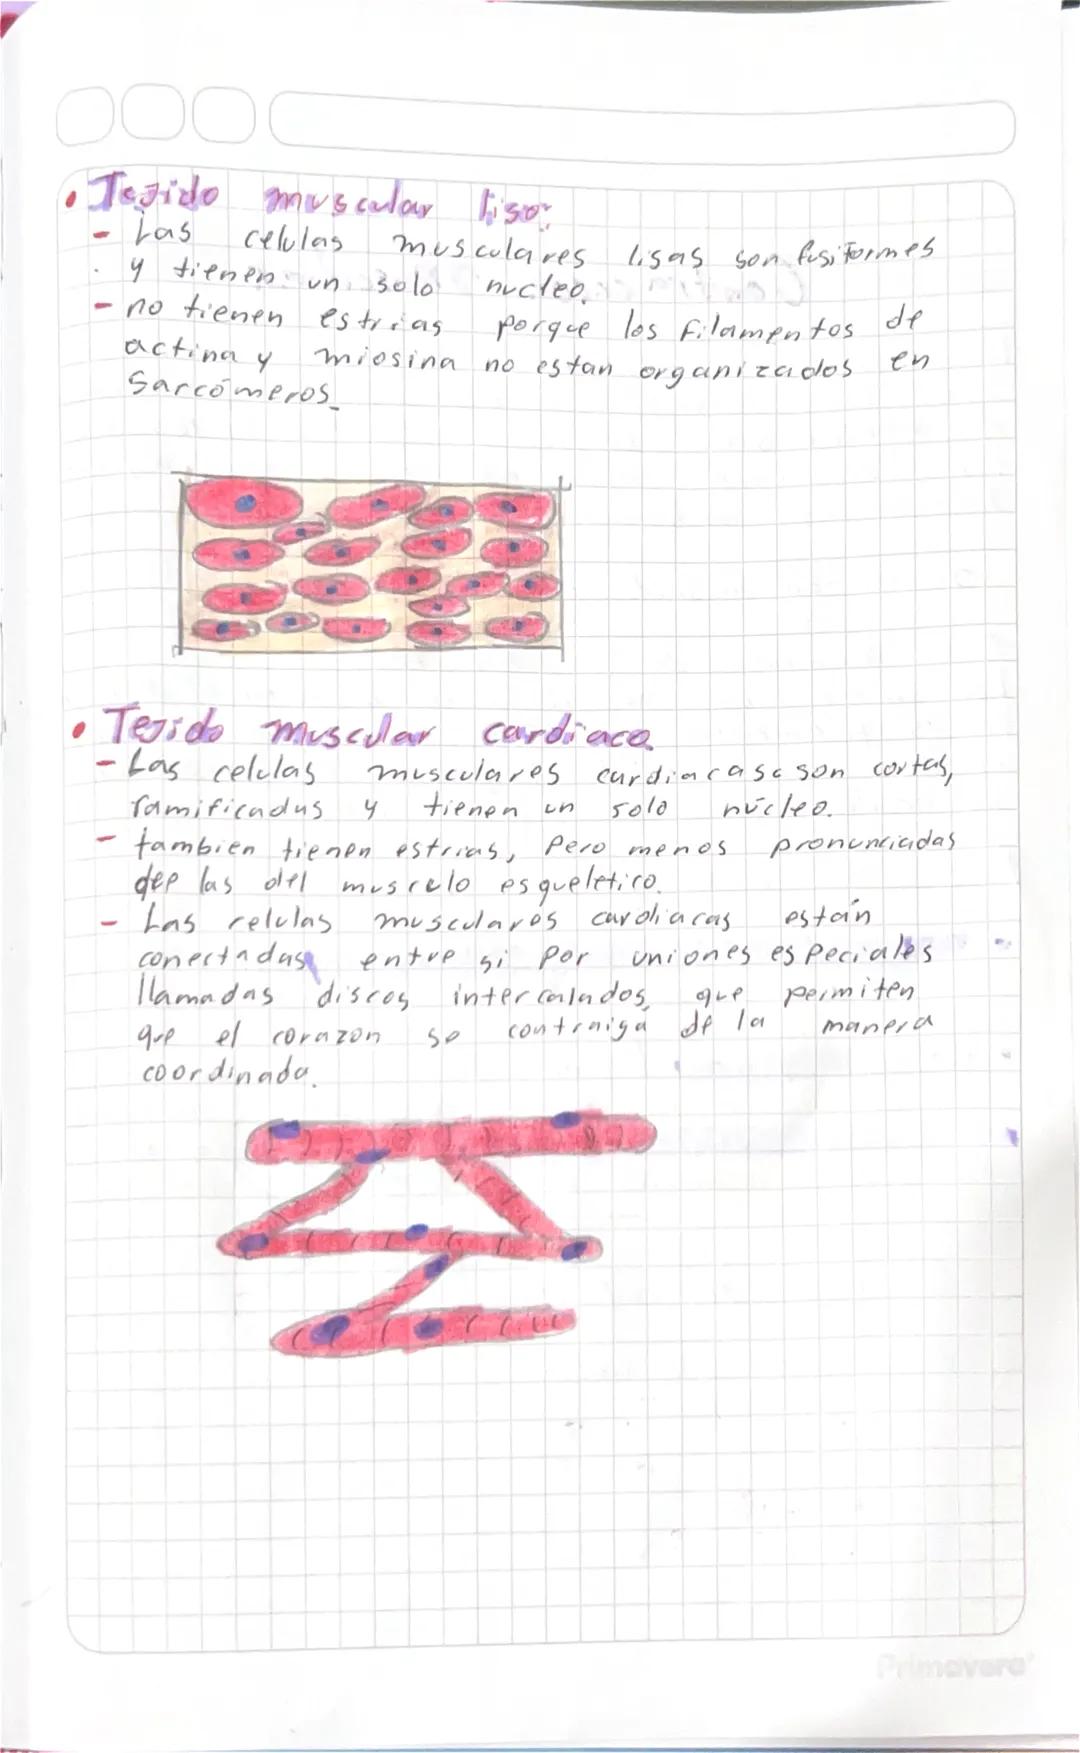 • Tejido muscular liso:
- Las celulas musculares lisas son fusiformes
y tienen un solo nucleo.
- no tienen estrias porque los filamentos de
actina y miosina no estan organizados en
Sarcómeros
• Tejido muscular cardiaco
- Las celulas musculares cardiacasc son cortas,
ramificadas y tienen un solo núcleo.
- tambien tienen estrias, Pero menos pronunciadas
dep las del musculo esqueletico.
- Las celulas musculares cardiacas están
conectadas entre si por uniones especiales
llamadas discos intercalados, que permiten
que el corazon se contraiga de la manera
coordinada.
Primavera